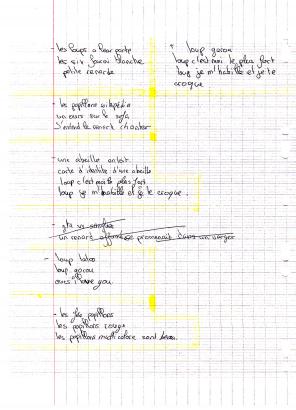 - les loups a leur porte
les six
blanche
petite renarde
loup garou
loup c'est moi le plus fort
loup je m'habille et je te
croque
- les papillons wikipédia
un ours sur le sofa
J'entend le renart chanter
une abeille
carte d'identité d'une abeille
loup c'est moi le plus fort
loup je m'habille et je te croque.
un renart affamé se promenait dans un verger
- loup
loup garou
ours I love you
- les papillons
les papillons rouge
les papillons multicolore sont beau.